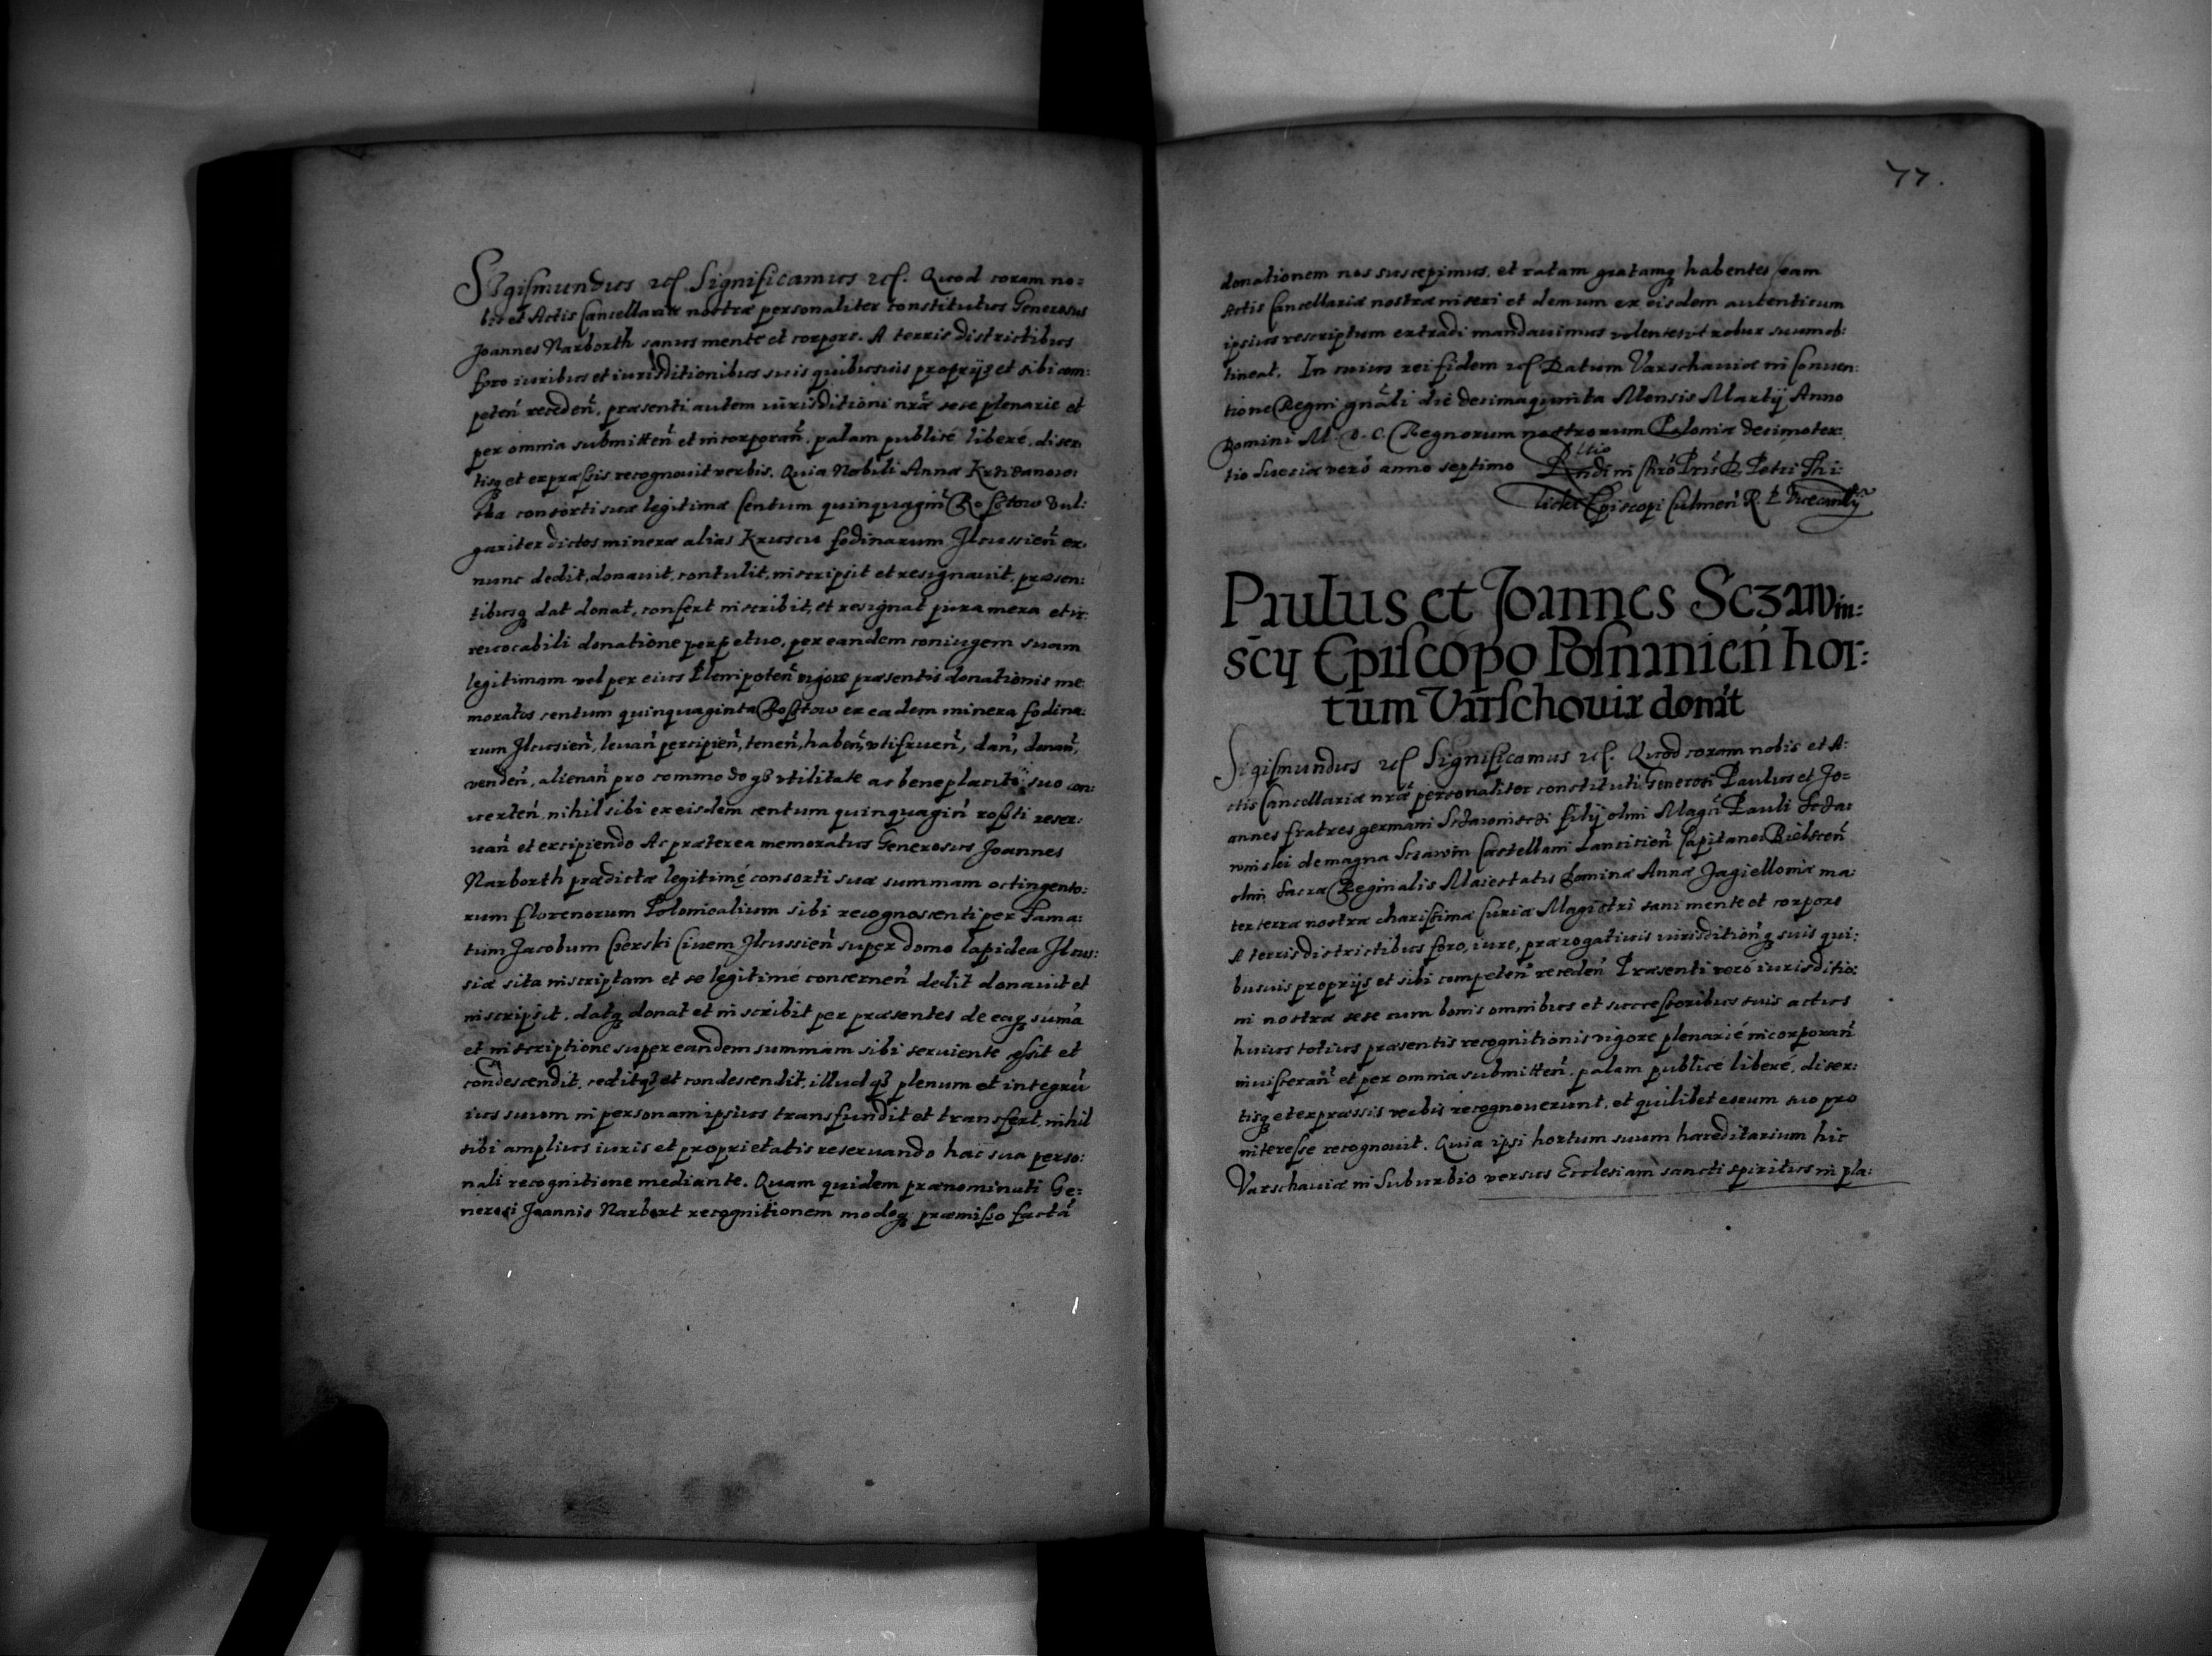 Sigismundus etc. Significamus etc. Quod coram no=
bis et Actis Cancellariæ nostræ personaliter constitutus Generosus
Joannes Narborth sanus mente et corpore. A terris districtibus
foro iuribus et iurisditionibus suis quibusuis proprijs et sibi com:
peteñ recedeñ, præsenti autem iurisditioni nræ sese plenarie et
per omnia submitteñ et incorporañ, palam publicè liberè, diser:
tisq et expræssis recognouit verbis. Quia Nobili Annæ
consorti suæ legitimæ Centum quinquagiñ Rosztow vul:
gariter dictos mineræ alias Kruscu fodinarum Ilcussieñ ex
nunc dedit, donauit, contulit, inscripsit et resignauit, præsen:
tibusq dat donat, confert inscribit, et resignat pura mera et ir:
reuocabili donatione perpetuo, per eandem coniugem suam
legitimam vel per eius Plenipoteñ vigore præsentis donationis me
moratos centum quinquaginta Rosztow ex eadem minera fodina:
rum Ilcusieñ, leuañ percipieñ, teneñ, habeñ, vtifrueñ, dañ, donañ,
vendeñ, alienañ pro commodo q3 vtilitate ac beneplacito suo con:
uerteñ, nihil sibi ex eisdem centum quinquagiñ roszti reser:
uañ et excipiendo Ac præterea memoratus Generosus Joannes
Narborth prædictæ legitimę consorti suæ summam octingento:
rum florenorum Polonicalium sibi recognoscenti per Fama:
tum Jacobum Cserski Ciuem Ilcussieñ super domo lapidea Ilcus:
siæ sita inscriptam et se legitimè concerneñ dedit donauit et
inscripsit, datq donat et inscribit per præsentes de eaq sum̃a
et inscriptione super eandem summam sibi seruiente cessit et
condescendit, ceditq3 et condescendit, illud q3 plenum et integrũ
ius suum in personam ipsius transfundit et transfert, nihil
sibi amplius iuris et proprietatis reseruando hac sua perso:
nali recognitione mediante. Quam quidem prænominati Ge:
nerosi Joannis Narbort recognitionem modoq præmisso factã
77.
donationem nos suscepimus, et ratam gratamq habentes eam
Actis Cancellariæ nostræ inseri et demum ex eisdem autenticum
ipsius rescriptum extradi mandauimus volentes vt robur suum ob:
tineat. In cuius rei fidem etc. Datum Varschauiæ in Conuen:
tione Regni gnãli die decimaquinta Mensis Martij Anno
Domini M. D. C. Regnorum nostrorum Poloniæ decimoter:
tio Sueciæ verò anno septimo Rltio
Rndi in Chrõ Pris D. Petri Thi:
licki Episcopi Culmeñ R. P. Vicecancellarij
Paulus et Joannes Sczawin:
scy Episcopo Posnanień hor:
tum Varschouiæ donat
Sigismundus etc. Significamus etc. Quod coram nobis et A:
ctis Cancellariæ nræ personaliter constituti Generosi Paulus et Jo=
annes fratres germani Sczawinscii filij olim Magci Pauli Scza:
winskii de magna Sczawin Castellani Lancicieñ Capitanei
olim Sacræ Reginalis Maiestatis Dominæ Annæ Jagielloniæ ma:
terteræ nostræ charissimæ Curiæ Magistri sani mente et corpore
A terris districtibus foro, iure, prærogatiuis iurisditioñq suis qui:
busuis proprijs et sibi competeñ recedeñ Præsenti verò iurisditio:
ni nostræ sese cum bonis omnibus et successoribus suis actus
huius totius præsentis recognitionis vigore plenariè incorporañ
inuisterañ et per omnia submitteñ, palam publicè liberè, diser:
tisq et expræssis verbis recognouerunt, et quilibet eorum suo pro
interesse recognouit. Quia ipsi hortum suum hæreditarium hic
Varschauiæ in Suburbio versus Ecclesiam sancti spiritus in pla: